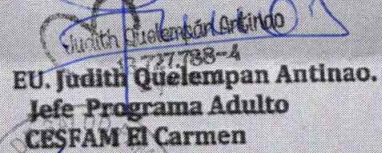 Judith Quelempán Antinao
13.727.788-4
EU. Judith Quelempan Antinao.
Jefe Programa Adulto
CESFAM El Carmen